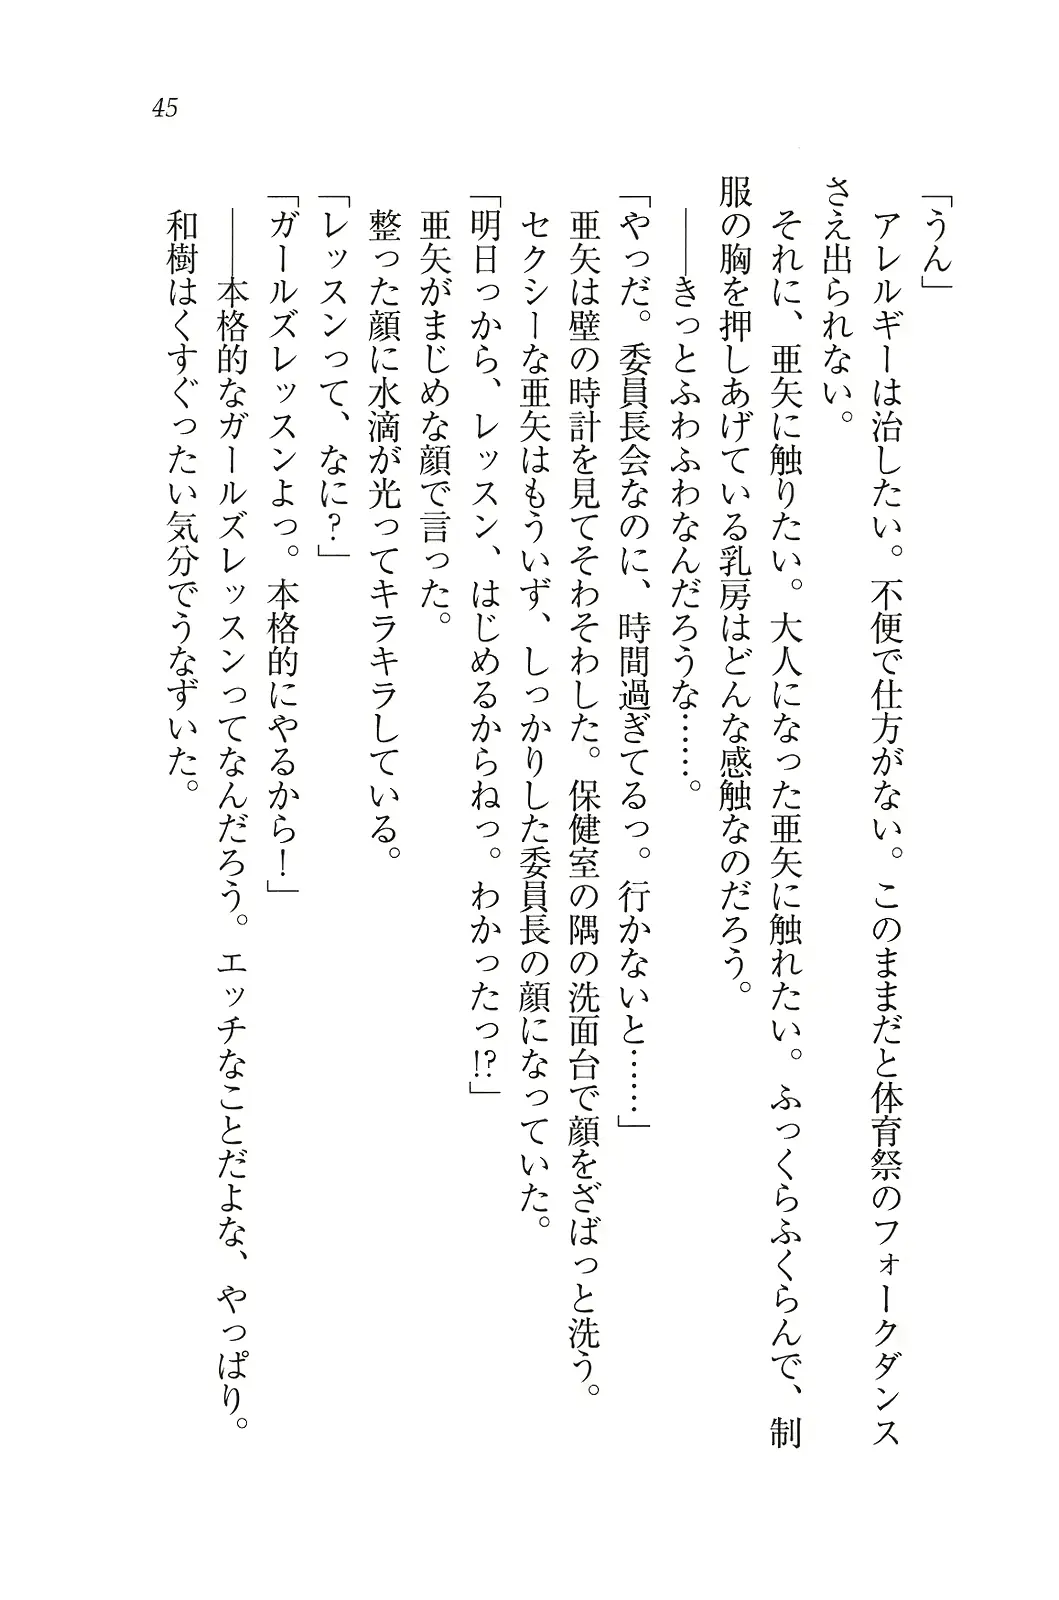 45
「うん」
　アレルギーは治したい。不便で仕方がない。このままだと体育祭のフォークダンス
さえ出られない。
　それに、亜矢に触りたい。大人になった亜矢に触れたい。ふっくらふくらんで、制
服の胸を押しあげている乳房はどんな感触なのだろう。
　――きっとふわふわなんだろうな……。
「やっだ。委員長会なのに、時間過ぎてるっ。行かないと……」
　亜矢は壁の時計を見てそわそわした。保健室の隅の洗面台で顔をざばっと洗う。
　セクシーな亜矢はもういず、しっかりした委員長の顔になっていた。
「明日っから、レッスン、はじめるからねっ。わかったっ!?」
　亜矢がまじめな顔で言った。
　整った顔に水滴が光ってキラキラしている。
「レッスンって、なに？」
「ガールズレッスンよっ。本格的にやるから！」
　――本格的なガールズレッスンってなんだろう。エッチなことだよな、やっぱり。
　和樹はくすぐったい気分でうなずいた。